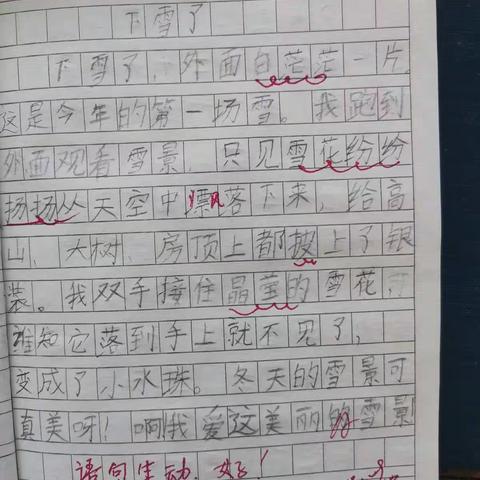 下雪了
下雪了，外面白茫茫一片。
这是今年的第一场雪。我跑到
外面观看雪景，只见雪花纷纷
扬扬从天空中飘落下来，给高
山、大树、房顶上都披上了银
装。我双手接住晶莹的雪花，
谁知它落到手上就不见了，
变成了小水珠。冬天的雪景可
真美呀！啊！我爱这美丽的雪景
语句生动，好！